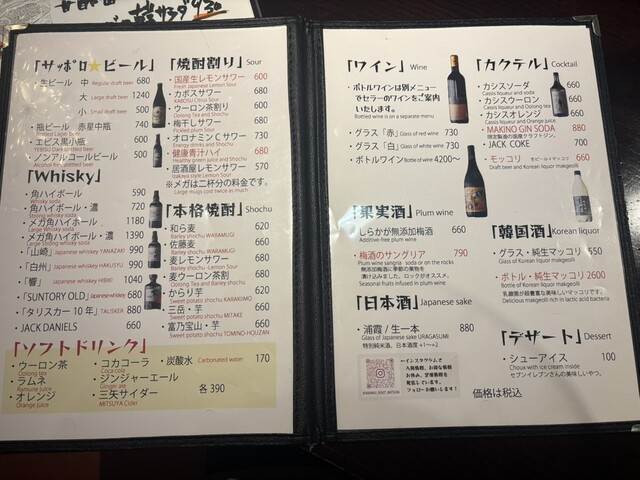 「サッポロ★ビール」
生ビール 中 Regular draft beer 680
大 Large draft beer 1240
小 Small draft beer 500
・瓶ビール 赤星中瓶 740
・エビス黒小瓶 600
・ノンアルコールビール 500
「Whisky」
・角ハイボール 590
Whisky soda
・角ハイボール・濃 720
Strong whisky soda
・メガ角ハイボール 1180
Large whisky soda
・メガ角ハイボール・濃 1390
Large Strong whisky soda
・「山崎」 Japanese whiskey YANAZAKI 990
・「白州」 Japanese whiskey HAKUSYU 990
・「響」 Japanese whiskey HIBIKI 1040
・「SUNTORY OLD」 Japanese whiskey 680
・「タリスカー10年」 TALISKER 880
・JACK DANIELS 660
「焼酎割り」 Sour
・国産生レモンサワー 600
Fresh Japanese Lemon Sour
・カボスサワー 680
KABOSU Citrus Sour
・ウーロン茶割り 600
Oolong Tea and Shochu
・梅干しサワー 680
Pickled plum Sour
・オロナミンCサワー 730
Energy drinks and Shochu
・健康青汁ハイ 680
Healthy green juice and Shochu
・居酒屋レモンサワー 570
Izakaya style Lemon Sour
※メガは二杯分の料金です。
Large mugs cost twice as much
「本格焼酎」 Shochu
・和ら麦 620
Barley shochu WARAMUGI
・佐藤麦 660
・麦レモンサワー 680
Barley shochu -Lemon Sour
・麦ウーロン茶割 680
Oolong Tea and Barley shochu
・からり芋 620
Sweet potato shochu KARAKIMO
・三岳・芋 660
Sweet potato shochu MITAKE
・富乃宝山・芋 660
Sweet potato shochu TOMINO-HOUZAN
「ソフトドリンク」
・ウーロン茶
Oolong tea
・ラムネ
Ramune juice
・オレンジ
Orange juice
・コカコーラ
Coca cola
・ジンジャーエール
Ginger ale
・三矢サイダー
MITSUYA Cider
・炭酸水 Carbonated water 170
各390
「ワイン」 Wine
・ボトルワインは別メニュー
でセラーのワインをご案内
いたします。
Bottled wine is on a separate menu
・グラス「赤」 Glass of red wine 730
・グラス「白」 Glass of white wine 730
・ボトルワイン Bottle of wine 4200～
「果実酒」 Plum wine
しらかが無添加梅酒 660
Additive-free plum wine
・梅酒のサングリア 790
Plum wine sangria soda or on the rocks
無添加梅酒に季節の果物を
漬け込みました。ロックがオススメ。
Seasonal fruits infused in plum wine
「日本酒」 Japanese sake
・浦霞/生一本 880
Glass of Japanese sake URAGASUMI
特別純米酒、日本酒度+1～+2
←インスタグラムで
入荷情報、お得な情報
お休み、営業情報を
発信しています。
フォローお願いします!
「カクテル」 Cocktail
・カシスソーダ 660
Cassis liqueur and soda
・カシスウーロン 660
Cassis liqueur and Oolong tea
・カシスオレンジ 660
Cassis liqueur and Orange juice
・MAKINO GIN SODA 880
・JACK COKE 700
・モッコリ 生ビール×マッコリ 660
Draft beer and Korean liquor makgeolli
「韓国酒」 Korean liquor
・グラス・純生マッコリ 550
Glass of Korean liquor makgeolli
・ボトル・純生マッコリ 2600
Bottle of Korean liquor makgeolli
乳酸菌が超豊富な美味しいマッコリです。
Delicious makgeolli rich in lactic acid bacteria
「デザート」 Dessert
・シューアイス 100
Choux with ice cream inside
セブンイレブンさんの美味しいやつ。
価格は税込